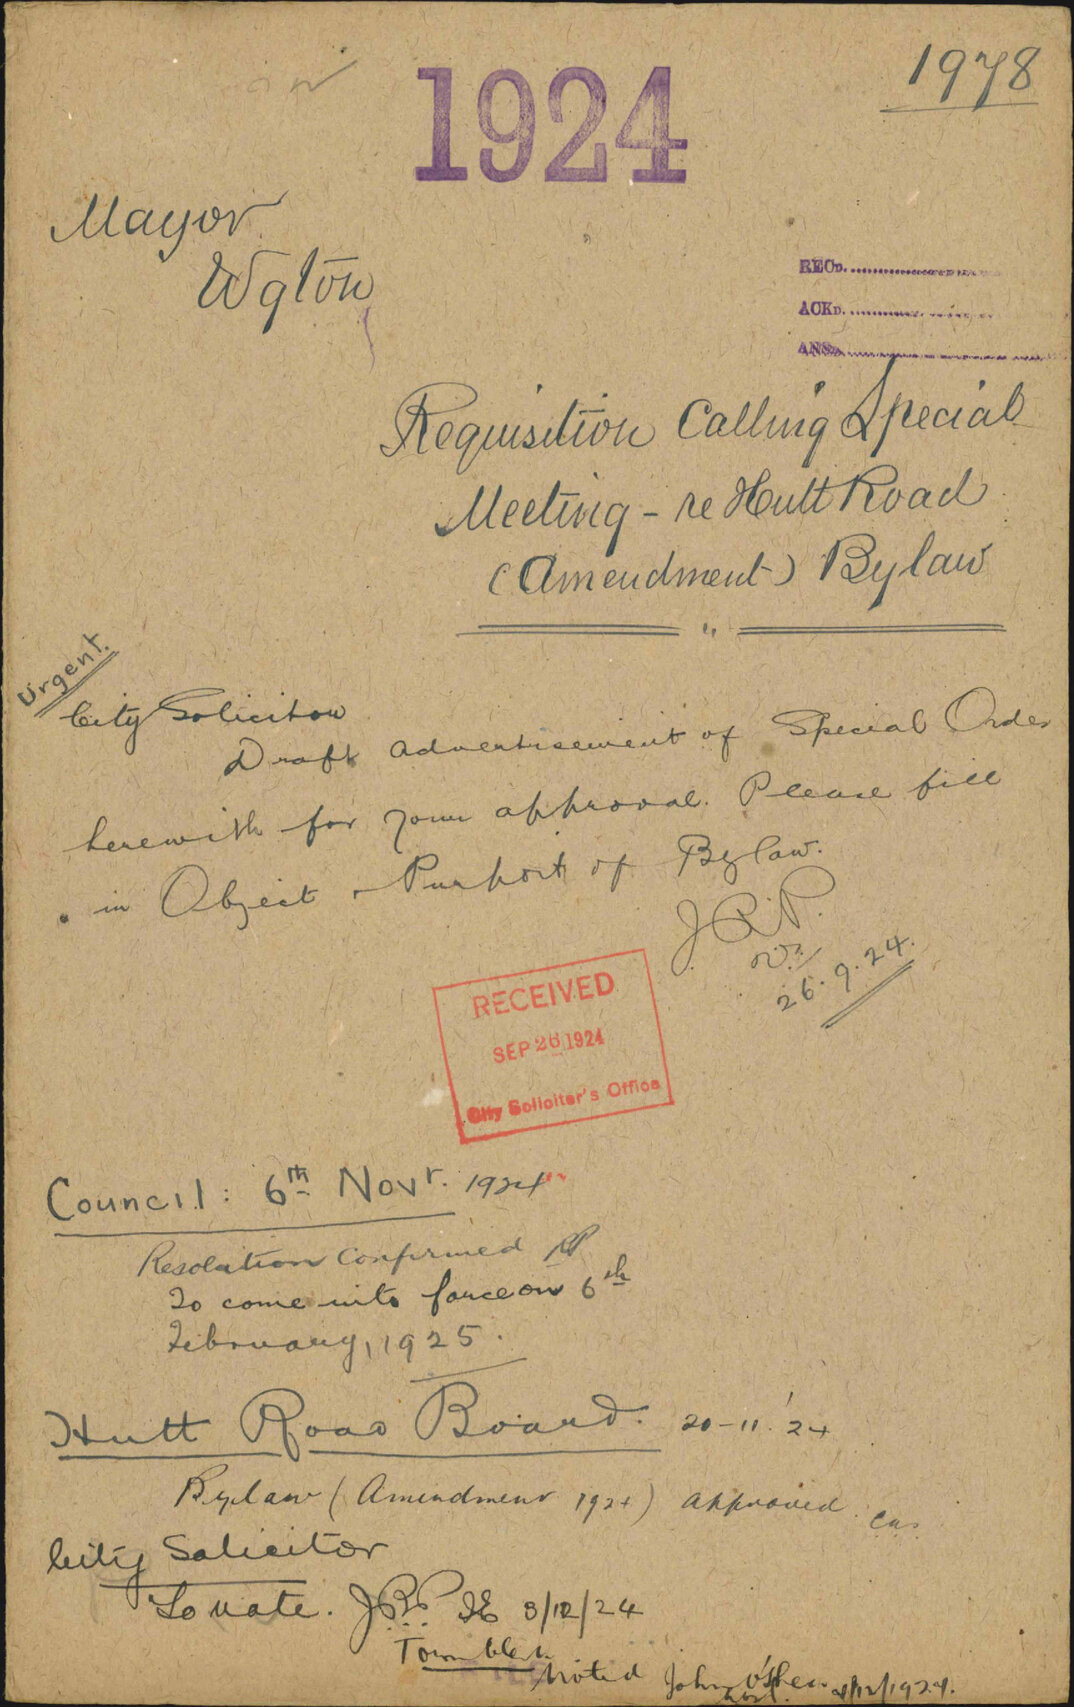 1978
1924
Mayor
Wgton
RECD.
ACKD.
ANSD.
Requisition Calling Special
Meeting - re Hutt Road
(Amendment) Bylaw
Urgent.
City Solicitor
Draft advertisement of Special Order
herewith for your approval. Please fill
in Object & Purport of Bylaw.
J.R.P.
26.9.24.
RECEIVED
SEP 26 1924
City Solicitor's Office
Council: 6th Novr. 1924
Resolution Confirmed
To come into force on 6th
February, 1925.
Hutt Road Board. 20-11-'24
Bylaw (Amendment 1924) approved.
City Solicitor
To note. JRP 3/12/24
Town Clerk
Noted John O'Shea 4/12/1924.